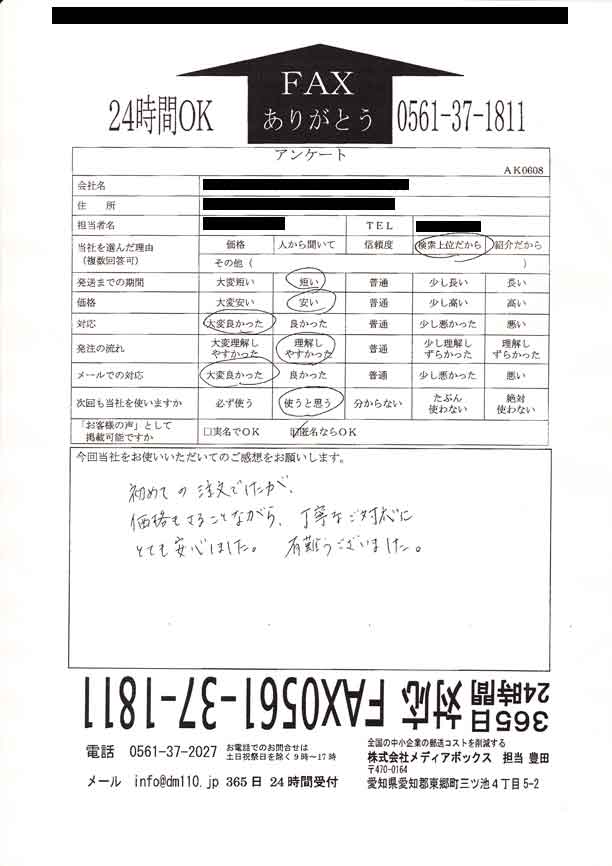 FAX
ありがとう
24時間OK
0561-37-1811
アンケート
AK0608
会社名
住　所
担当者名　TEL
当社を選んだ理由（複数回答可）　価格　人から聞いて　信頼度　検索上位だから　紹介だから
その他（　）
発送までの期間　大変短い　短い　普通　少し長い　長い
価格　大変安い　安い　普通　少し高い　高い
対応　大変良かった　良かった　普通　少し悪かった　悪い
発注の流れ　大変理解しやすかった　理解しやすかった　普通　少し理解しずらかった　理解しずらかった
メールでの対応　大変良かった　良かった　普通　少し悪かった　悪い
次回も当社を使いますか　必ず使う　使うと思う　分からない　たぶん使わない　絶対使わない
「お客様の声」として掲載可能ですか　□実名でOK　☑匿名ならOK
今回当社をお使いいただいてのご感想をお願いします。
初めての注文でしたが、
価格もさることながら、丁寧なご対応に
とても安心しました。　有難うございました。
365日24時間 対応 FAX0561-37-1811
電話　0561-37-2027　お電話でのお問合せは土日祝祭日を除く9時～17時
メール　info@dm110.jp　365日 24時間受付
全国の中小企業の郵送コストを削減する
株式会社メディアボックス　担当 豊田
〒470-0164
愛知県愛知郡東郷町三ツ池4丁目5-2